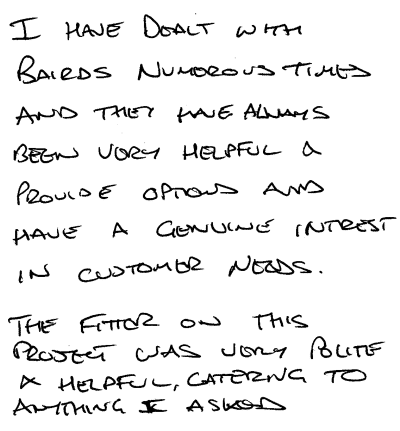 I HAVE DEALT WITH
BAIRDS NUMEROUS TIMES
AND THEY HAVE ALWAYS
BEEN VERY HELPFUL &
PROVIDE OPTIONS AND
HAVE A GENUINE INTREST
IN CUSTOMER NEEDS.
THE FITTER ON THIS
PROJECT WAS VERY POLITE
& HELPFUL, CATERING TO
ANYTHING I ASKED